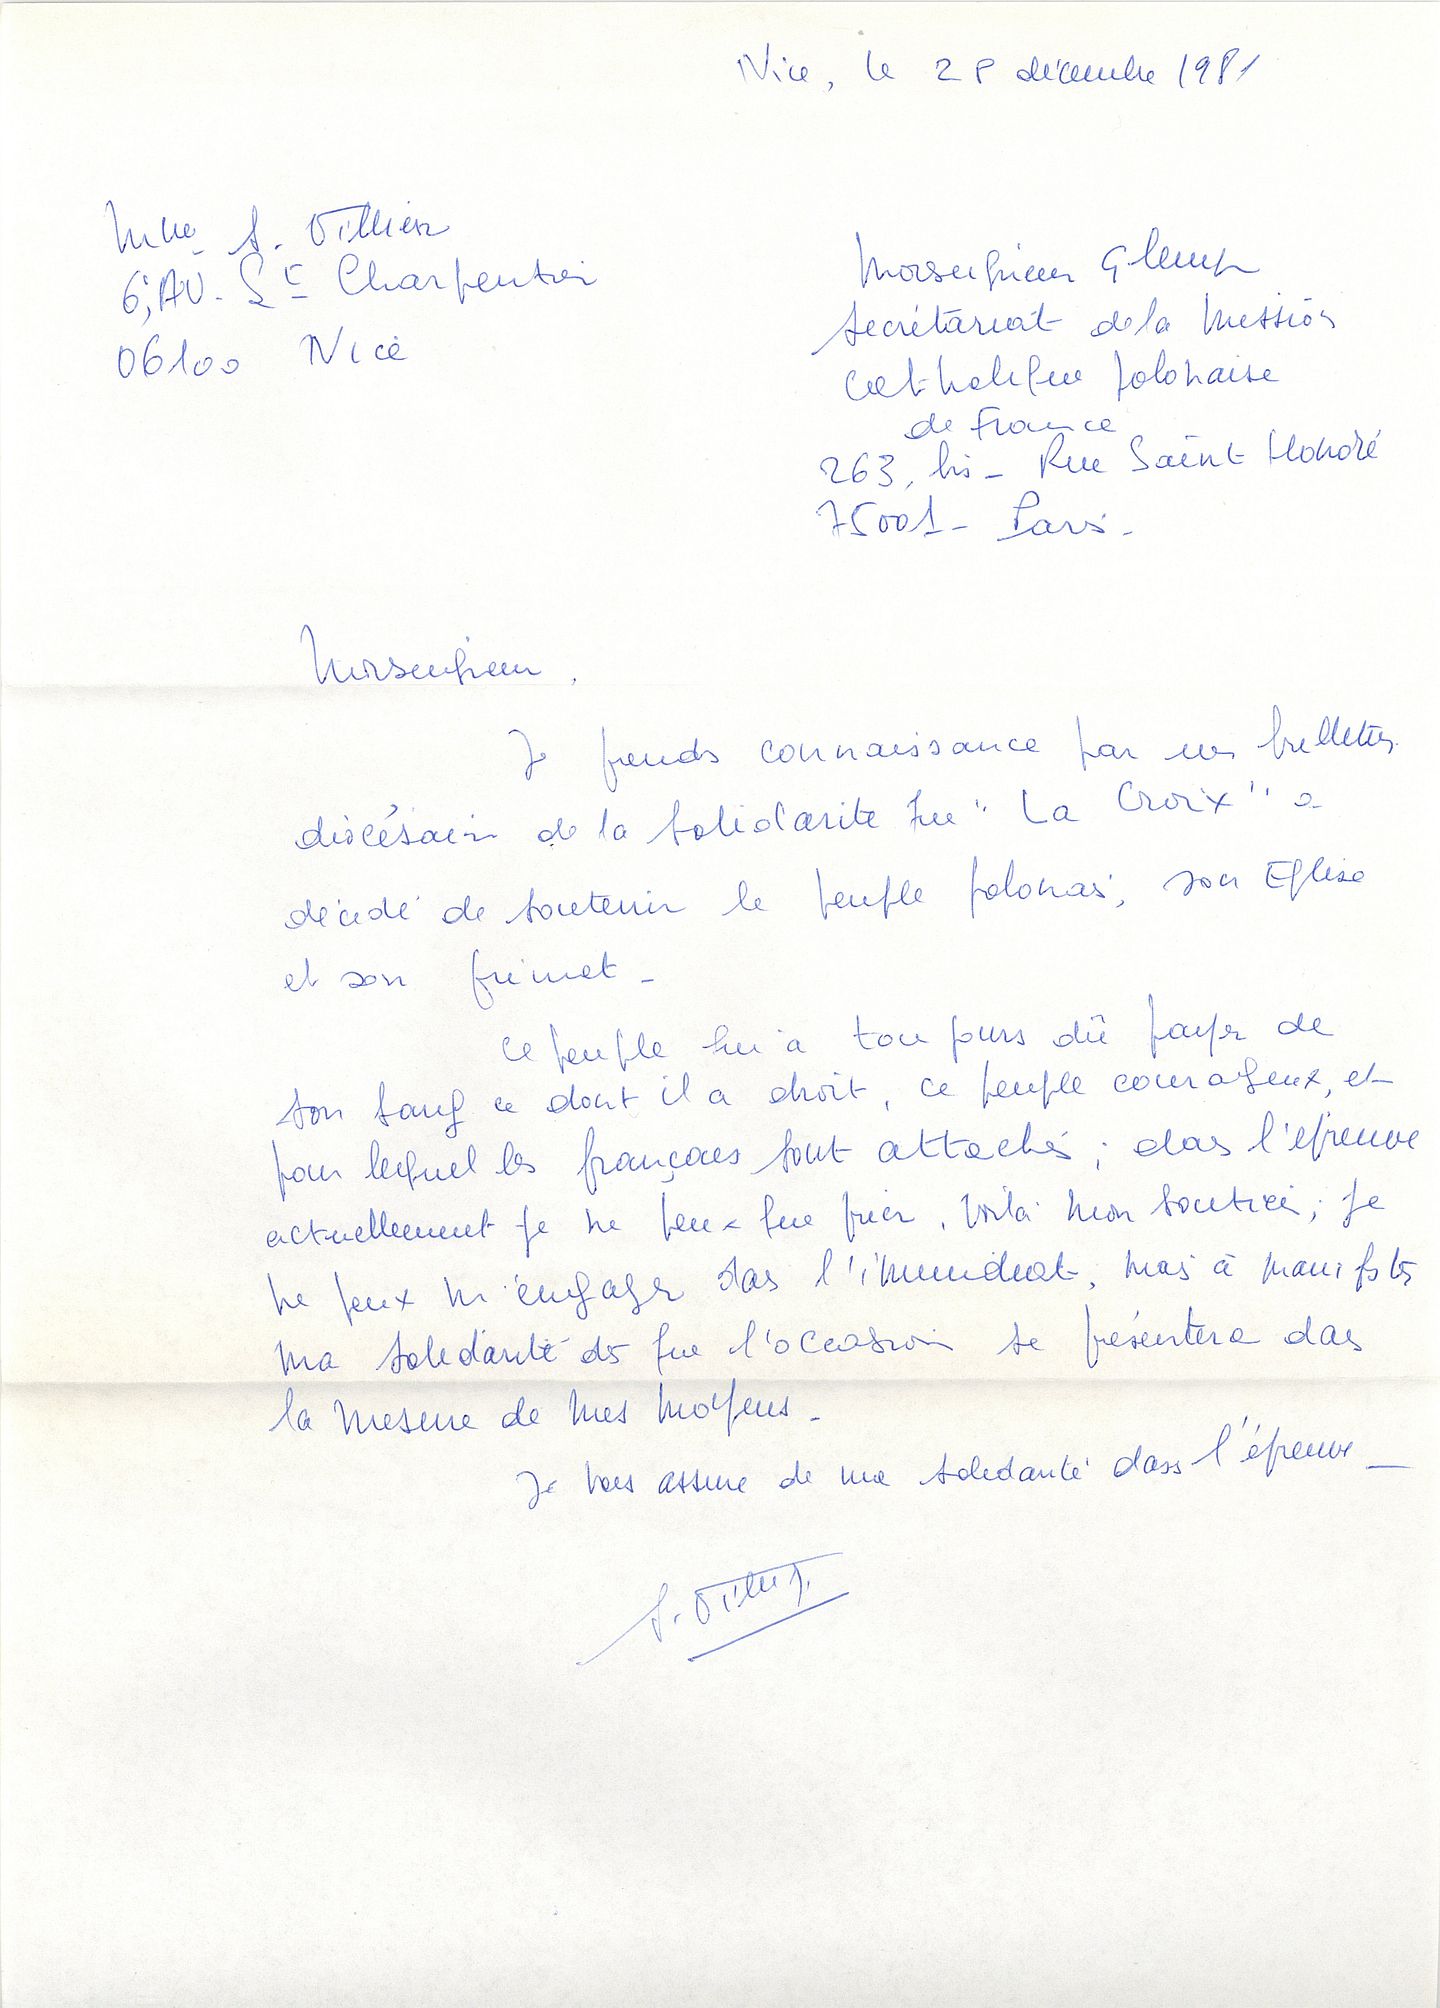 Nice, le 28 décembre 1981
Mlle S. Villier
6, AV. St Charpentier
06100 Nice
Monseigneur Glemp
Secrétariat de la Mission
Catholique polonaise
de France
263, bis - Rue Saint Honoré
75001 - Paris.
Monseigneur,
Je prends connaissance par un bulletin
diocésain de la solidarité que "La Croix" a
décidé de soutenir le peuple polonais, son Eglise
et son primat -
Ce peuple qui a toujours dû payer de
son sang ce dont il a droit, ce peuple courageux, et
pour lequel les français sont attachés ; dans l'épreuve
actuellement je ne peux que prier, voilà mon soutien, je
ne peux m'engager dans l'immédiat, mais à manifester
ma solidarité dès que l'occasion se présentera dans
la mesure de mes moyens -
Je vous assure de ma solidarité dans l'épreuve -
S. Villier